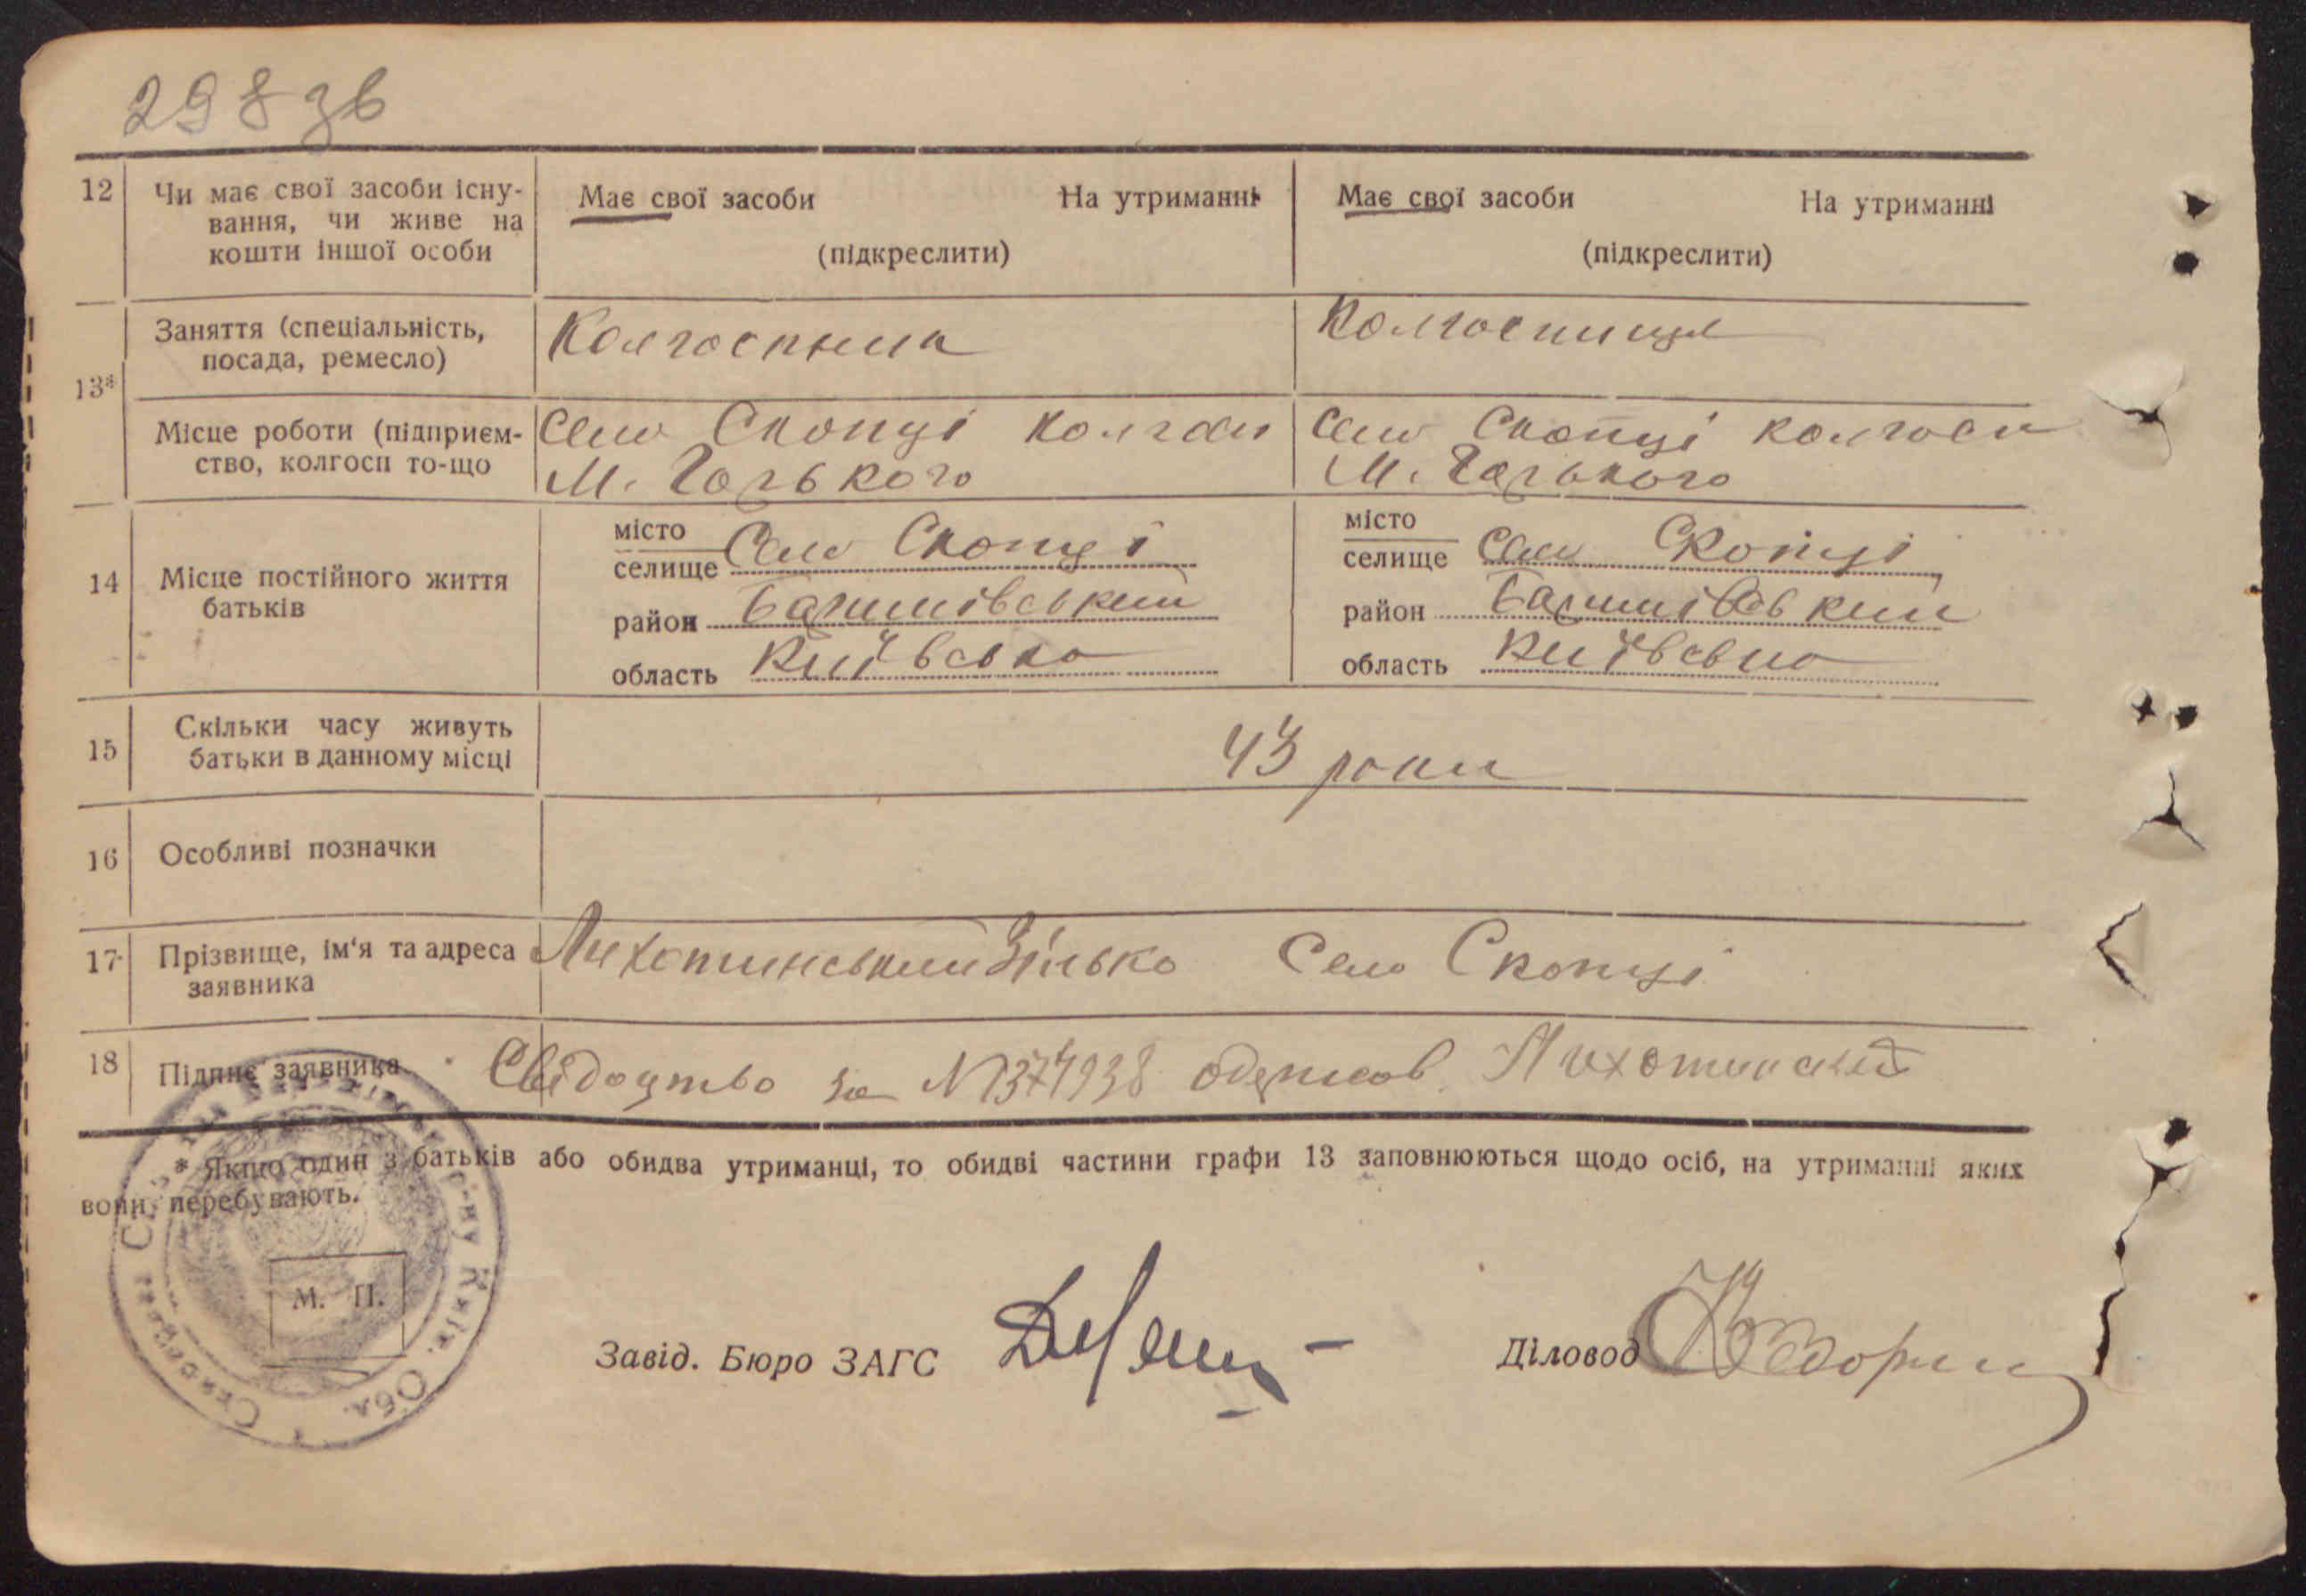 298 зв
12 Чи має свої засоби існу- Має свої засоби На утриманні Має свої засоби На утриманні
вання, чи живе на
кошти іншої особи (підкреслити) (підкреслити)
Заняття (спеціальність, Колгоспник Колгоспниця
посада, ремесло)
13*
Місце роботи (підприєм- Село Скопці колгосп Село Скопці колгосп
ство, колгосп то-що М. Горького М. Горького
14 Місце постійного життя
батьків
місто
селище Село Скопці
район Баришівський
область Київська
місто
селище Село Скопці
район Баришівський
область Київська
15 Скільки часу живуть
батьки в данному місці 43 роки
16 Особливі позначки
17 Прізвище, ім'я та адреса Лихотинський Зінько Село Скопці
заявника
18 Підпис заявника Свідоцтво за N 374938 одержав Лихотинский
* Якщо один з батьків або обидва утриманці, то обидві частини графи 13 заповнюються щодо осіб, на утриманні яких
вони перебувають.
М. П.
Завід. Бюро ЗАГС
Діловод